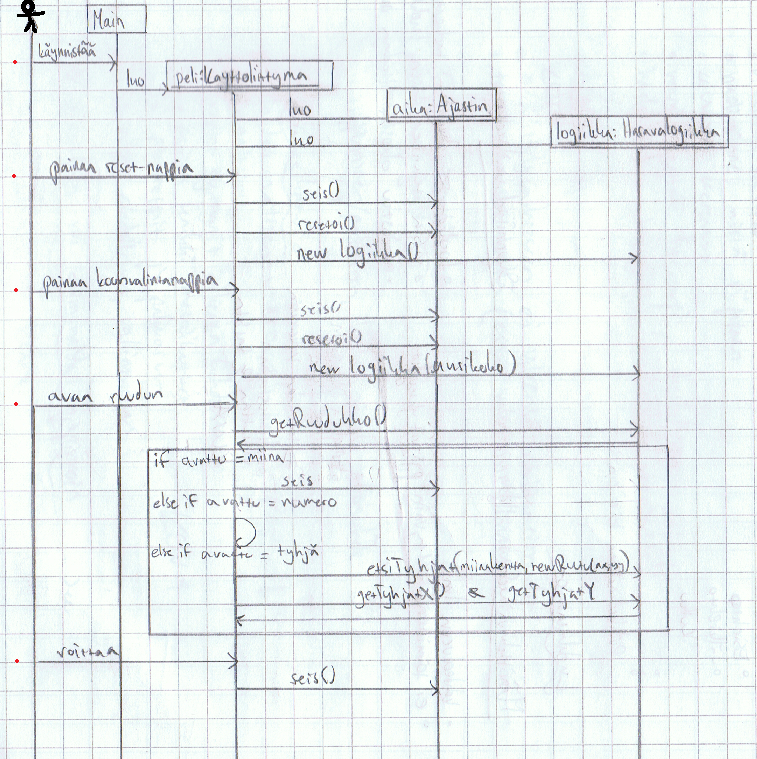 Main
käynnistää
luo
peli:Kayttoliittyma
luo
aika:Ajastin
luo
logiikka:Haravalogiikka
painaa reset-nappia
seis()
resetoi()
new logiikka()
painaa koonvalintanappia
seis()
resetoi()
new logiikka(uusikoko)
avaa ruudun
getRuudukko()
if avattu = miina
seis
else if avattu = numero
else if avattu = tyhjä
etsiTyhjat(miinakentta, newRuutu(
getTyhjatX() & getTyhjatY
voittaa
seis()